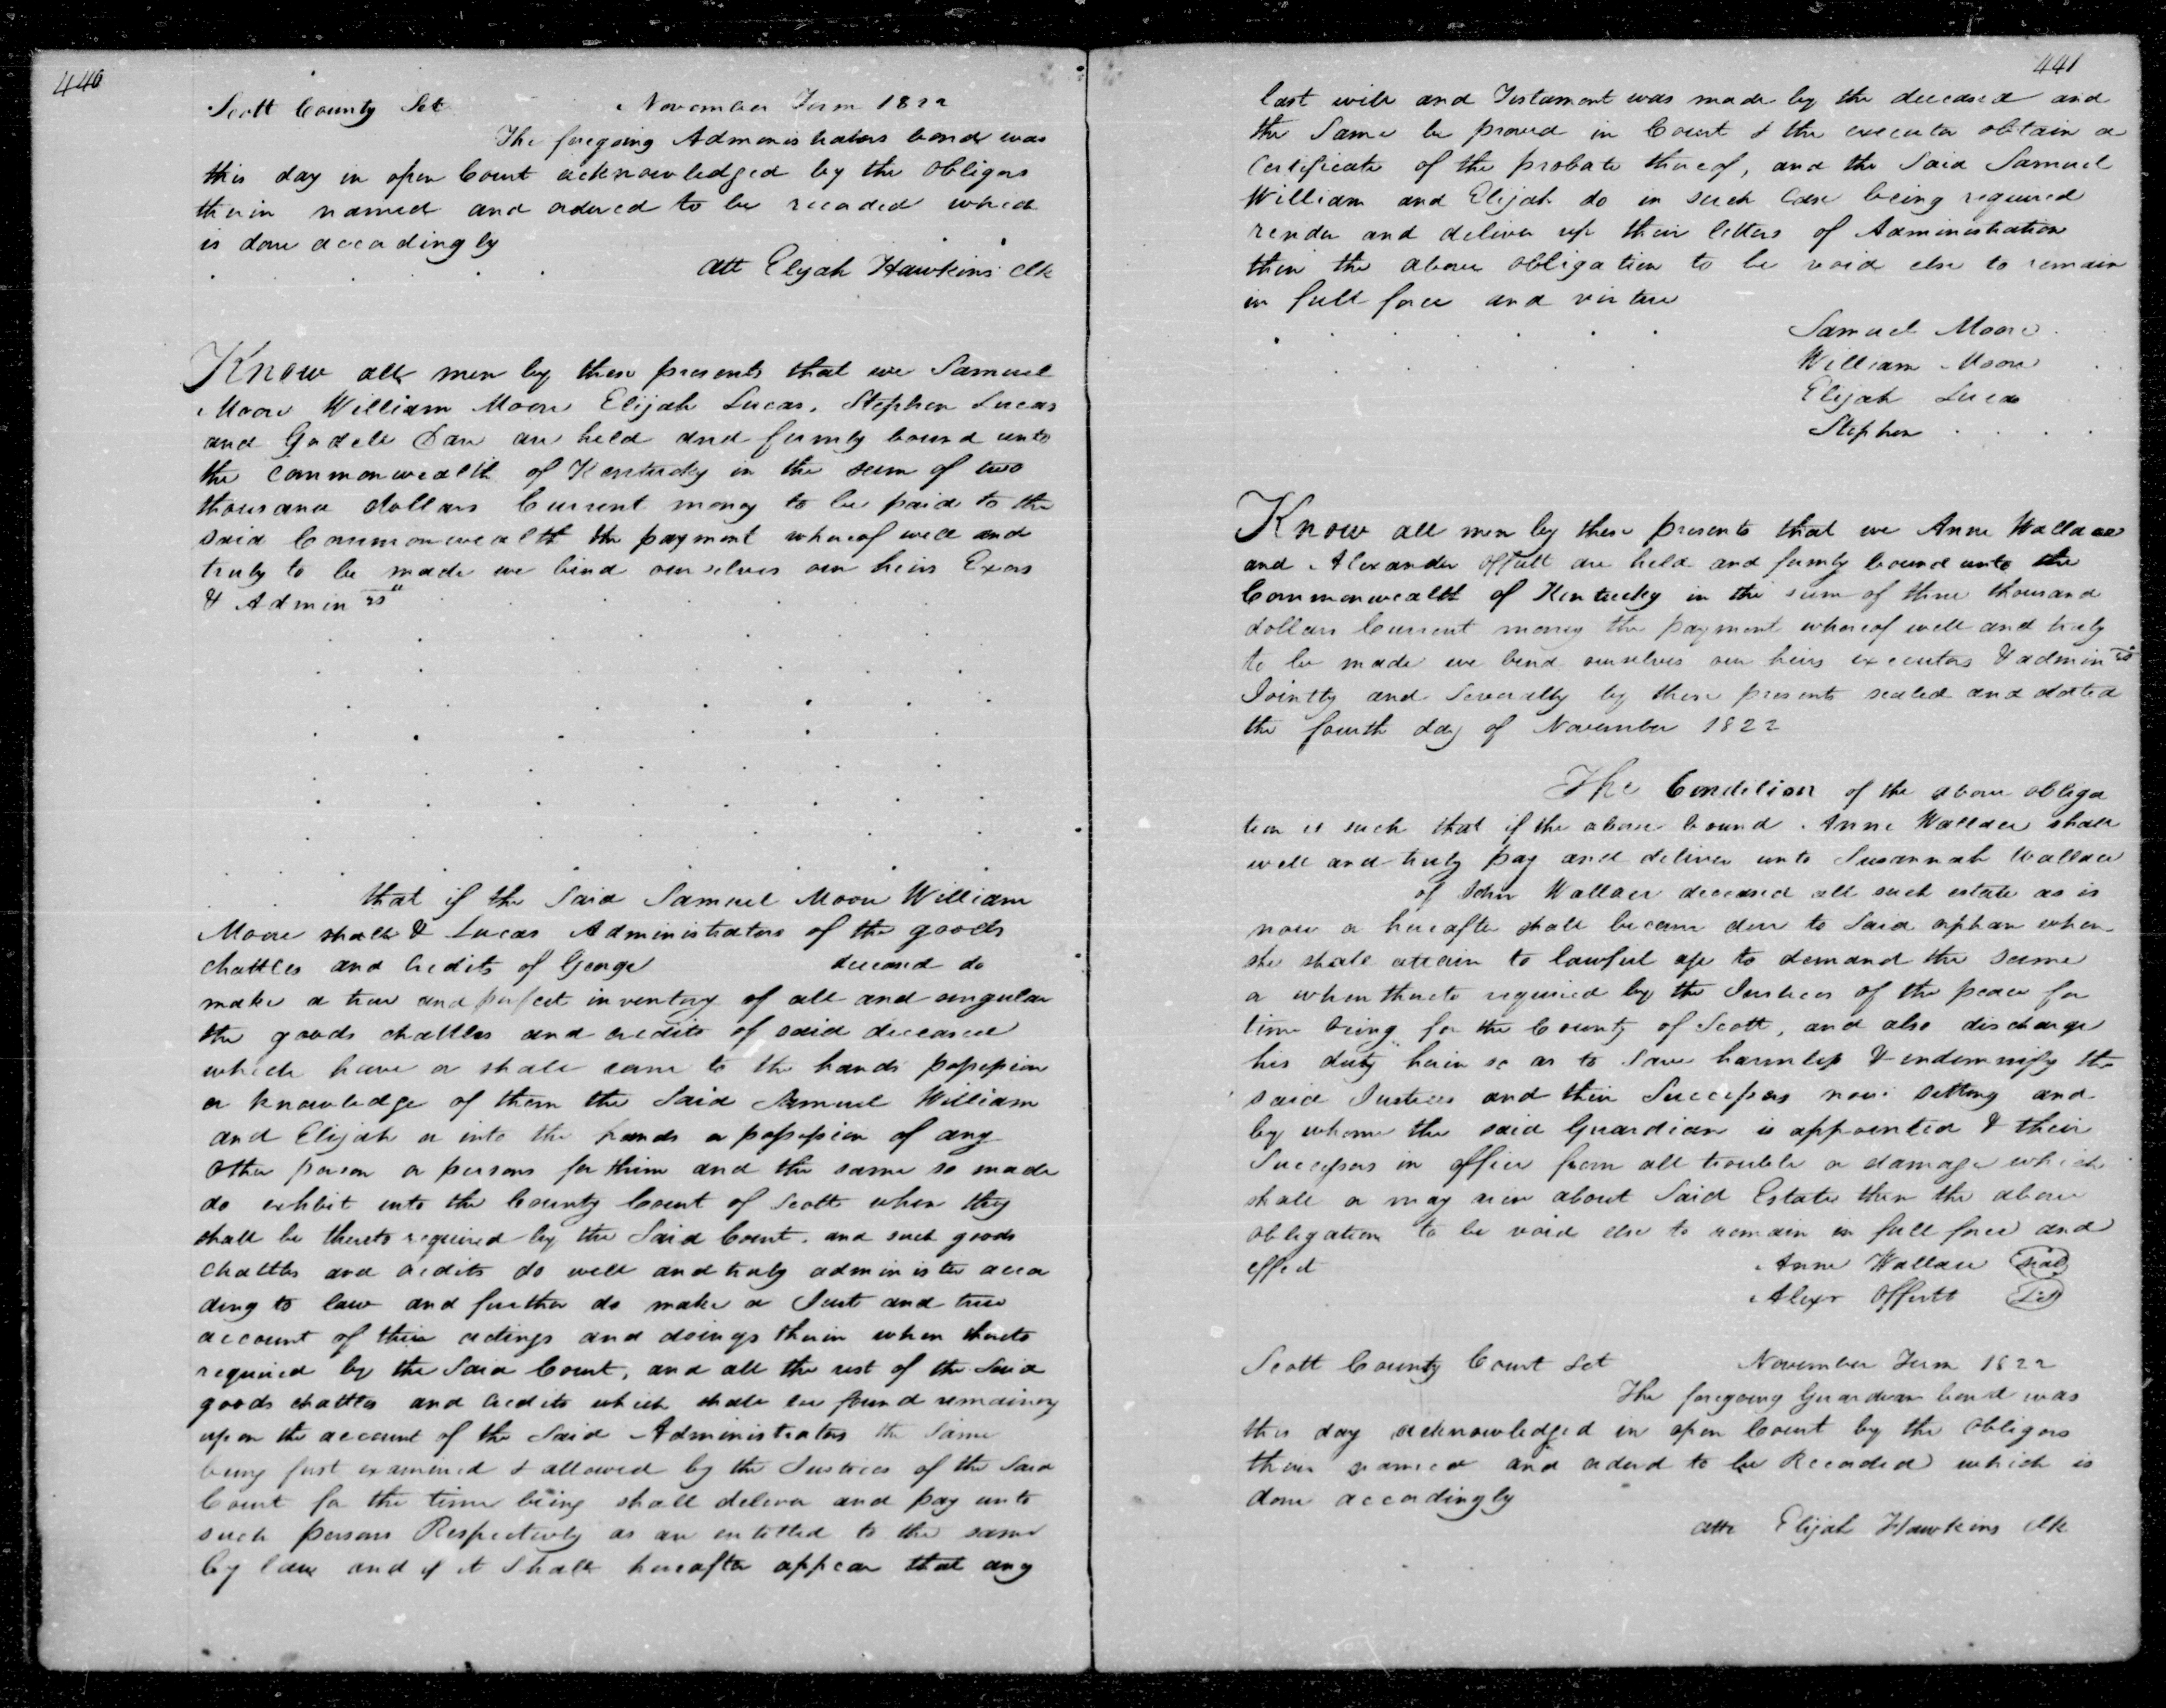 440
Scott County Sct November Term 1822
The foregoing Administrators bond was
this day in open Court acknowledged by the obligors
therein named and ordered to be recorded which
is done accordingly
Att Elijah Hawkins Clk
Know all men by these presents that we Samuel
Moore William Moore Elijah Lucas, Stephen Lucas
and are held and firmly bound unto
the Commonwealth of Kentucky in the sum of two
thousand dollars Current money to be paid to the
said Commonwealth the payment whereof well and
truly to be made we bind ourselves our heirs Exors
& Adminrs
that if the Said Samuel Moore William
Moore shall & Lucas Administrators of the goods
chattles and credits of George deceased do
make a true and perfect inventory of all and singular
the goods chattles and credits of said deceased
which have or shall come to the hands possession
or knowledge of them the Said Samuel William
and Elijah or into the hands or possession of any
other person or persons for them and the same so made
do exhibit into the County Court of Scott when they
shall be thereto required by the Said Court, and such goods
chattles and credits do well and truly administer accor
ding to law and further do make a Just and true
account of their actings and doings therein when thereto
required by the Said Court, and all the rest of the Said
goods chattles and credits which shall be found remaining
upon the account of the Said Administrators the Same
being first examined & allowed by the Justices of the Said
Court for the time being shall deliver and pay unto
such persons Respectively as are entitled to the same
by law and if it Shall hereafter appear that any
441
last will and Testament was made by the deceased and
the Same be proved in Court & the executor obtain a
Certificate of the probate thereof, and the Said Samuel
William and Elijah do in such Case being required
render and deliver up their letters of Administration
then the above obligation to be void else to remain
in full force and virtue
Samuel Moore
William Moore
Elijah Lucas
Stephen
Know all men by these presents that we Anne Wallace
and Alexander Offutt are held and firmly bound unto the
Commonwealth of Kentucky in the sum of three thousand
dollars Current money the payment whereof well and truly
to be made we bind ourselves our heirs executors & adminrs
Jointly and Severally by these presents sealed and dated
the fourth day of November 1822
The Condition of the above obliga
tion is such that if the above bound Anne Wallace shall
well and truly pay and deliver unto Susannah Wallace
of John Wallace deceased all such estate as is
now or hereafter shall become due to Said orphan when
she shall attain to lawful age to demand the same
or when thereto required by the Justices of the peace for
time being for the County of Scott, and also discharge
his duty herein so as to Save harmless & indemnify the
said Justices and their Successors now setting and
by whome the said Guardian is appointed & their
Successors in office from all trouble or damage which
shall or may arise about Said Estate then the above
obligation to be void else to remain in full force and
effect Anne Wallace Seal
Alexr Offutt
Scott County Court Sct November Term 1822
The foregoing Guardian bond was
this day acknowledged in open Court by the obligors
therein named and orderd to be Recorded which is
done accordingly
Atte Elijah Hawkins Clk